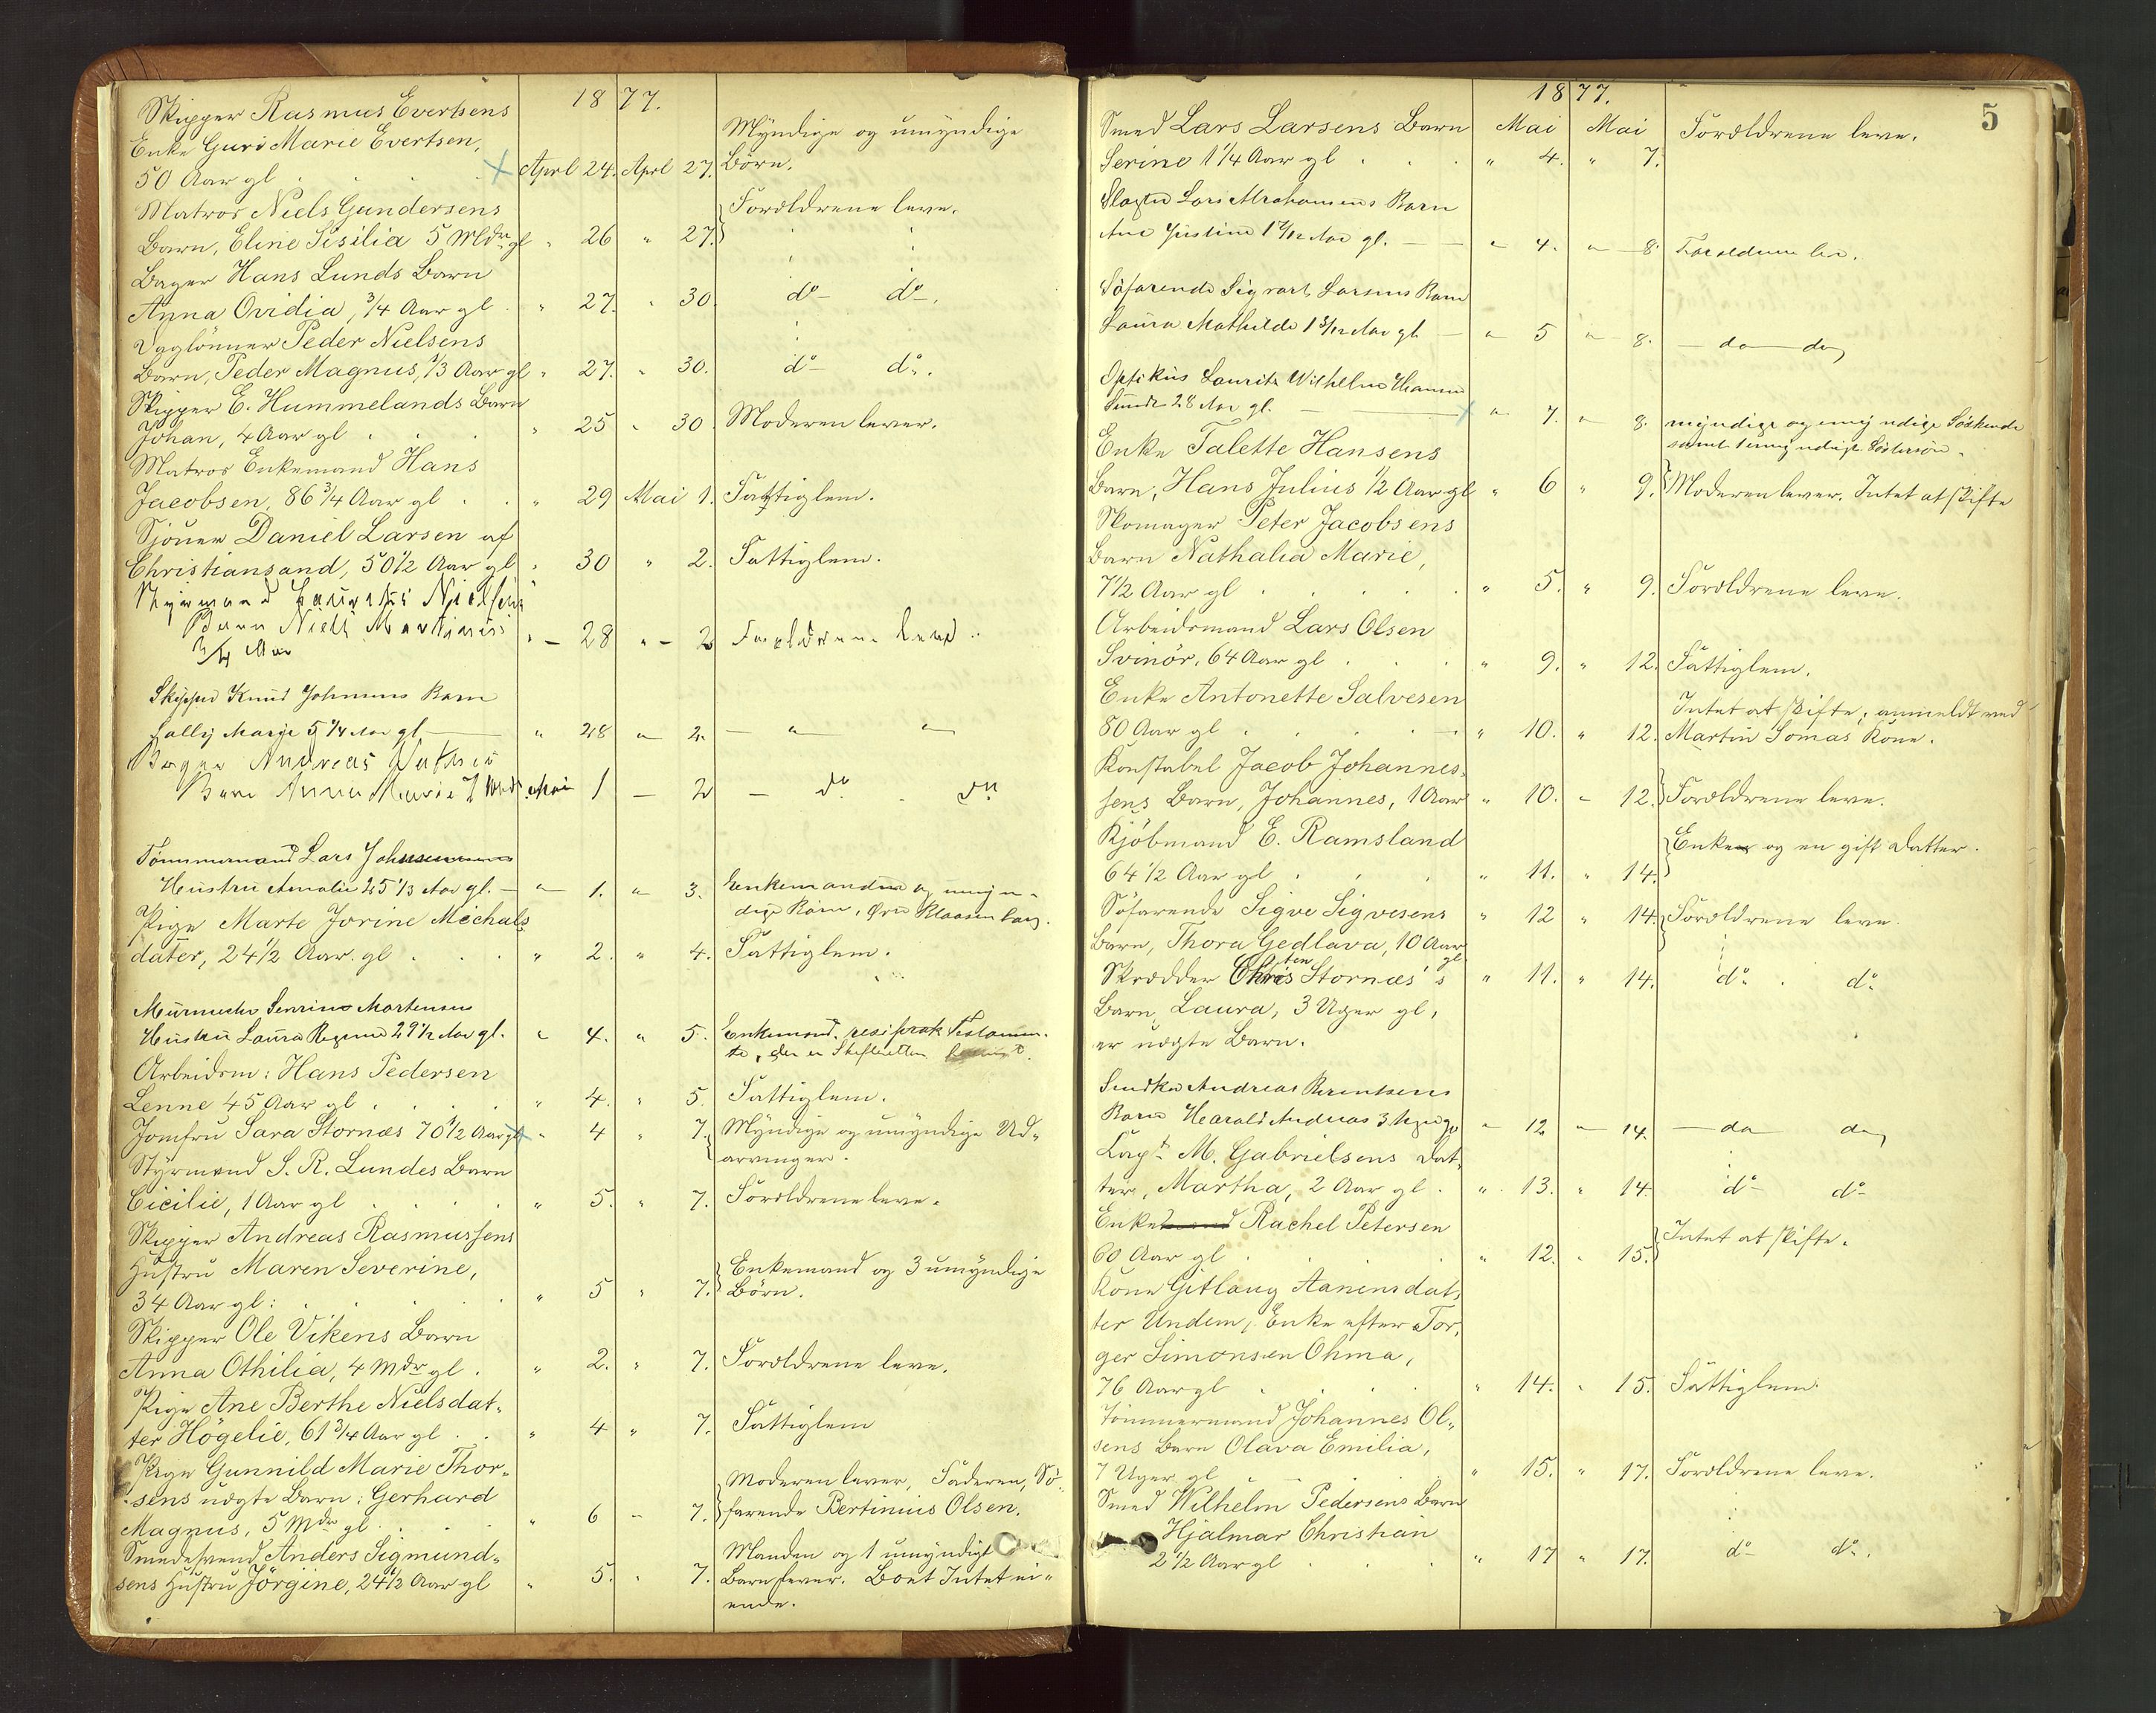 1877.
Skipper Rasmus Evertsens
Enke Guri Marie Evertsen,
50 Aar gl . . . April 24. April 27. Myndige og umyndige Börn.
Matros Niels Gundersens
Barn, Eline Sisilia 5 Mdr gl " 26 " 27. Forældrene leve.
Bager Hans Lunds Barn
Anna Ovidia, 3/4 Aar gl . " 27. " 30. do do.
Peder Nielsens
Barn, Peder Magnus, 1/3 Aar gl " 27. " 30. do do.
Skipper E. Hummelands Barn
Johan, 4 Aar gl . . . " 25 " 30. Moderen lever.
Matros Enkemand Hans
Jacobsen, 86 3/4 Aar gl . . " 29 Mai 1. Fattiglem.
Sjöuer Daniel Larsen af
Christiansand, 50 1/2 Aar gl " 30 " 2. Fattiglem.
Styrmand Nielsens
Barn Niels Martinius
3/4 Aar " - 28 " - 2 Forældrene leve.
Skipper Knud Johnsens Barn
Sally Marie 5 1/4 Aar gl " 28 " 2. — " "
Bager Andreas
Barn Anna Marie 7 Mdr Mai 1 — 2 — do do
Tömmermand Lars Johnsens
Hustru Amalie 25 1/3 Aar gl. — " 1. " 3. Enkemanden og umyn-
dige Börn, Klaasen
Pige Marte Jorine Michals
dater, 24 1/2 Aar gl . . . " 2. " 4. Fattiglem.
Murmester Sörine Mortensens
Hustru Laura Regine 29 1/2 Aar gl. " 4. " 5. Enkemand. resiprok Testamen-
te, der er Skifteretten
Arbeidsm: Hans Pedersen
Lenne 45 Aar gl . . . " 4. " 5. Fattiglem.
Jomfru Sara Stornæs 70 1/2 Aar gl " 4 " 7. Myndige og umyndige Ud-
arvinger.
Styrmand S. R. Lundes Barn
Cicilie, 1 Aar gl . . . " 5. " 7. Forældrene leve.
Skipper Andreas Rasmussens
Hustru Maren Severine,
34 Aar gl: . . . " 5 " 7. Enkemand og 3 umyndige Börn.
Skipper Ole Vikens Barn
Anna Othilia, 4 Mdr gl . " 2. " 7. Forældrene leve.
Pige Ane Berthe Nielsdat-
ter Högelie, 61 3/4 Aar gl . . " 4 " 7. Fattiglem
Pige Gunnild Marie Thor-
sens uægte Barn: Gerhard
Magnus, 5 Mdr gl . . . " 6 " 7. Moderen lever, Faderen, Sö-
farende Bertinius Olsen.
Smedesvend Anders Sigmund-
sens Hustru Jörgine, 24 1/2 Aar gl " 5. " 7. Manden og 1 umyndigt
Barn lever. Boet Intet ei-
ende.
5
1877.
Smed Lars Larsens Barn Mai Mai Forældrene leve.
Serine 1 1/4 Aar gl . . . " 4. " 7.
Slagter Lars Abrahamsens Barn
Ane Justine 1 Aar gl. — " 4. " 8. Forældrene lev.
Söfarende Sigvart Larsens Barn
Laura Mathilde 1 3/12 Aar gl — " 5 " 8. — do do
Optikus Laurits Wilhelm Hansen
Sunde 28 Aar gl. — " 7. " 8. myndige og umyndige Söskende
samt 1 umyndig Söstersön.
Enke Talette Hansens
Barn, Hans Julius 1/2 Aar gl " 6 " 9. Moderen lever. Intet at skifte
Skomager Peter Jacobsens
Barn Nathalia Marie,
7 1/2 Aar gl . . . . " 5. " 9. Forældrene leve.
Arbeidsmand Lars Olsen
Svinör, 64 Aar gl . . . " 9. " 12. Fattiglem.
Enke Antonette Salvesen
80 Aar gl . . . " 10. " 12. Intet at skifte, anmeldt ved
Martin Tomas Kone.
Konstabel Jacob Johannes-
sens Barn, Johannes, 1 Aar " 10. " 12. Forældrene leve.
Kjöbmand E. Ramsland
64 1/2 Aar gl . . . " 11. " 14. Enke og en gift Datter.
Söfarende Sigve Sigvesens " 12 " 14. Forældrene leve.
Barn, Thora Gedlava, 10 Aar gl
Skrædder Christen Stornæs's " 11. " 14. do . do
Barn, Laura, 3 Uger gl,
er uægte Barn.
Snedker Andreas Berentsens
Barn Harald Andreas 3 Uger gl " 12 " 14. — do do
Capt M. Gabrielsens Dat-
ter, Martha, 2 Aar gl . " 13. " 14. do do
Enke Rachel Petersen
60 Aar gl . . " 12. " 15. Intet at skifte.
Kone Gitlaug Aanensdat-
ter Undem, Enke efter Tor-
ger Simonsen Ohma,
76 Aar gl . . . " 14. " 15. Fattiglem.
Tömmermand Johannes Ol-
sens Barn Olava Emilia,
7 Uger gl . . . " 15. " 17. Forældrene leve.
Smed Wilhelm Pedersens Barn
Hjalmar Christian
2 1/2 Aar gl . . " 17 " 17. do do.